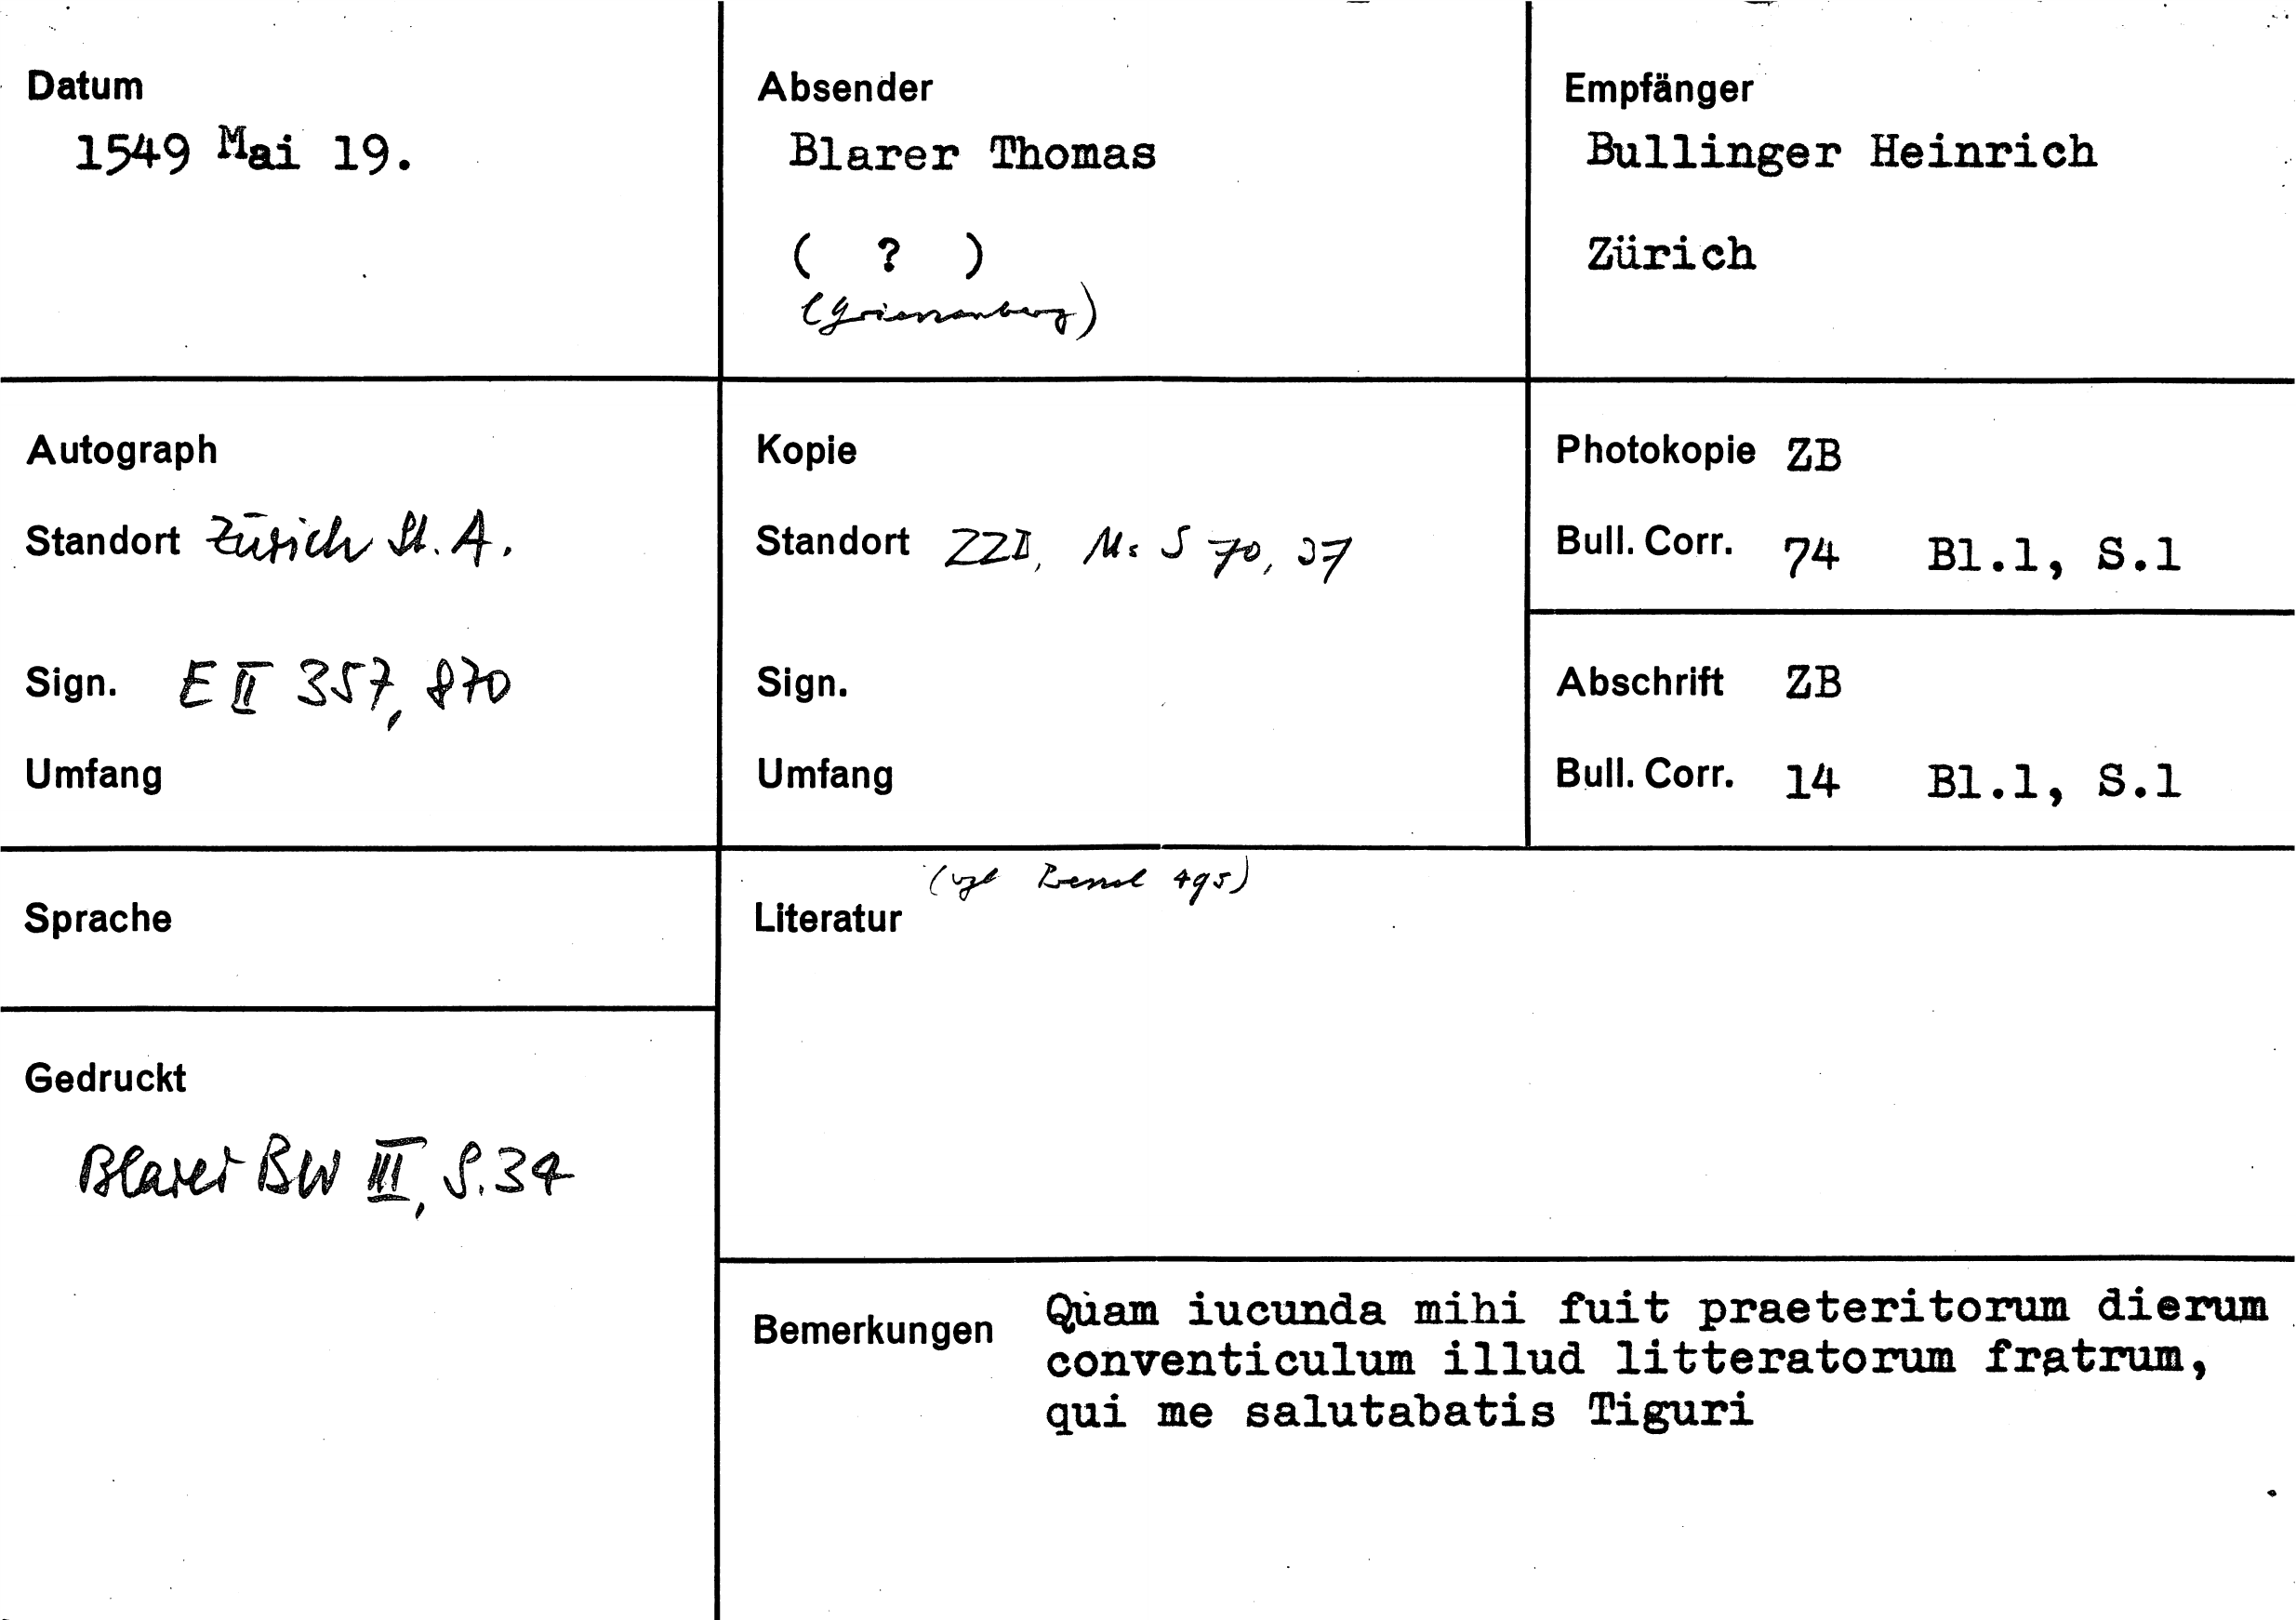 Datum
1549 Mai 19.
Absender
Blarer Thomas
( ? )
(Griessenberg)
Empfänger
Bullinger Heinrich
Zürich
Autograph
Standort Zürich St. A.
Sign. E II 357, 870
Umfang
Kopie
Standort ZZB, Ms S 70, 37
Sign.
Umfang
Photokopie ZB
Bull. Corr. 74 Bl.1, S.1
Abschrift ZB
Bull. Corr. 14 Bl.1, S.1
Sprache
(vgl 495)
Literatur
Gedruckt
Blarer BW III, S. 34
Bemerkungen
Quam iucunda mihi fuit praeteritorum dierum
conventiculum illud litteratorum fratrum,
qui me salutabatis Tiguri